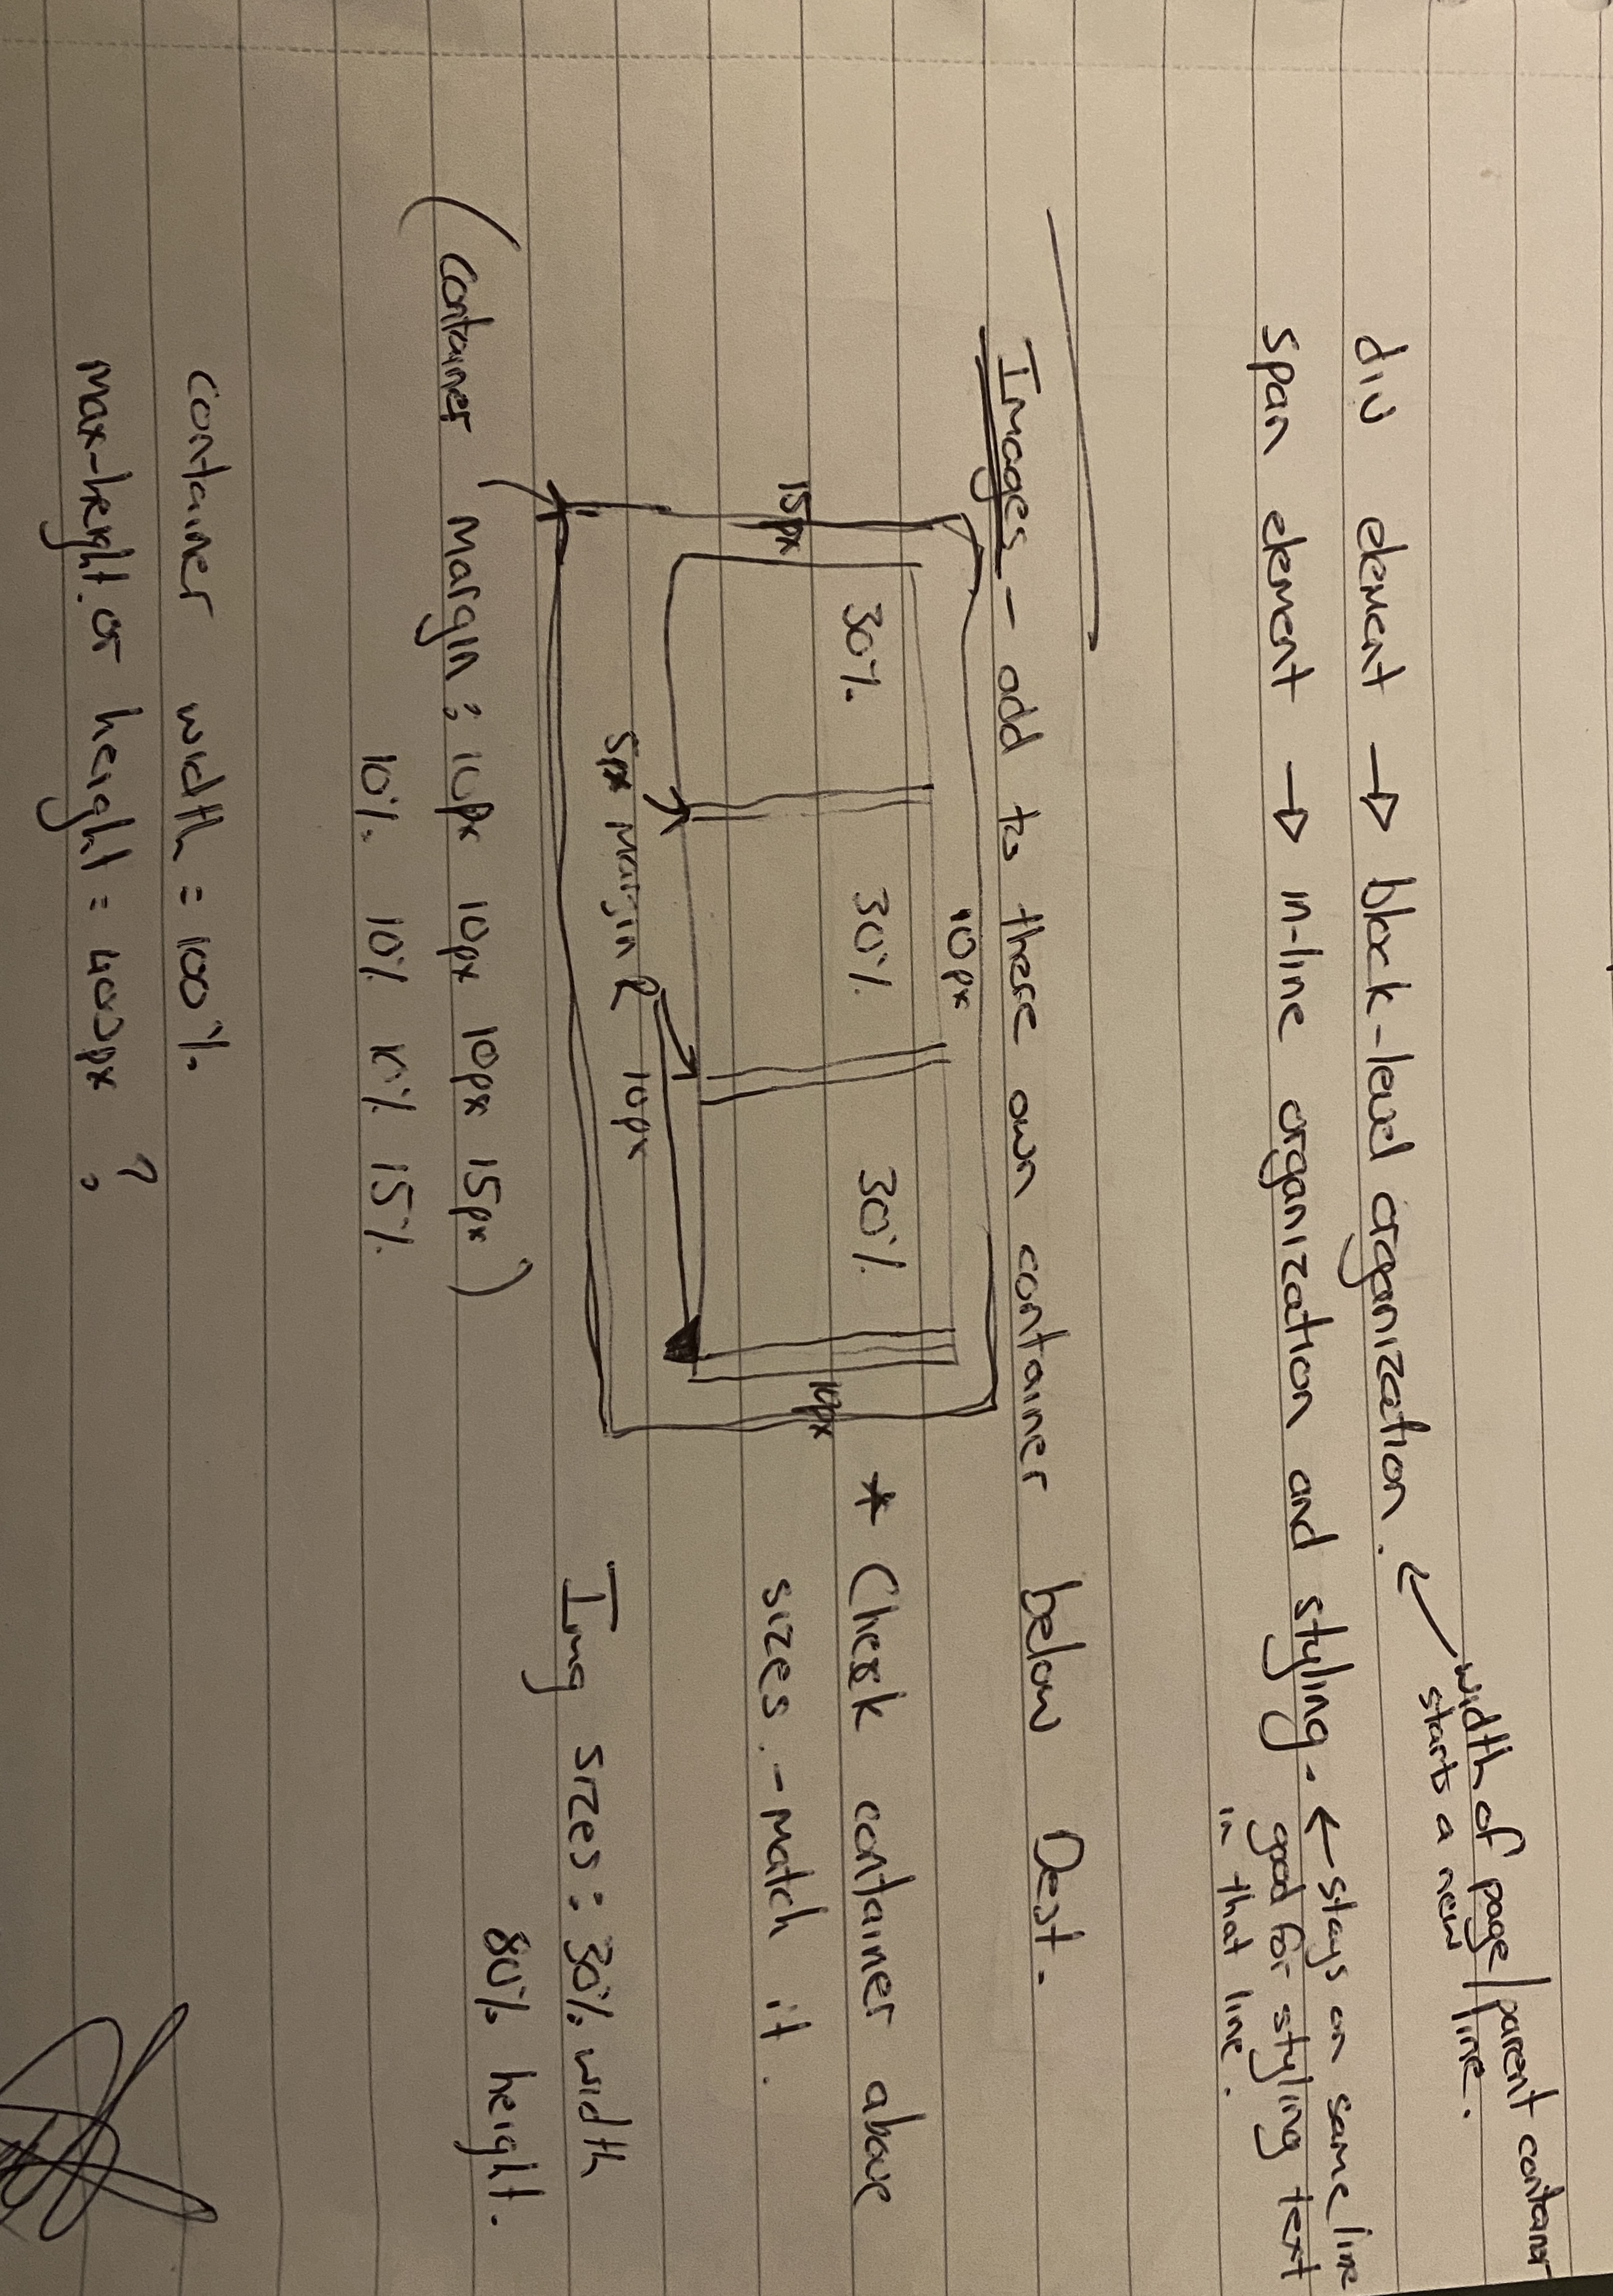 div element → block-level organization. ← width of page/parent container
starts a new line.
span element → in-line organization and styling. ← stays on same line
good for styling text
in that line.
Images - add to there own container below Dest.
10px
15px
30% 30% 30%
10px
* Check container above
sizes - match it.
5px margin R
10px
Img sizes: 30% width
80% height.
(Container margin: 10px 10px 10px 15px)
10% 10% 10% 15%
container width = 100%
max-height or height = 400px ?